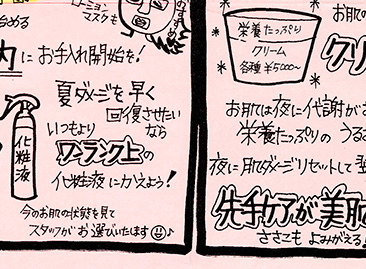 ローション
マスクも
始める
内にお手入れ開始を!
夏ダメージを早く
回復させたい
いつもより なら
ワンランク上の
化粧液
化粧液にかえよう!
今のお肌の状態を見て
スタッフがお選びいたます♪
栄養たっぷり
クリーム
各種¥5000〜
お肌の
クリ
お肌は夜に代謝が
栄養たっぷりの うる
夜に肌ダメージリセットして
先手ケアが美肌
ささこも よみがえる